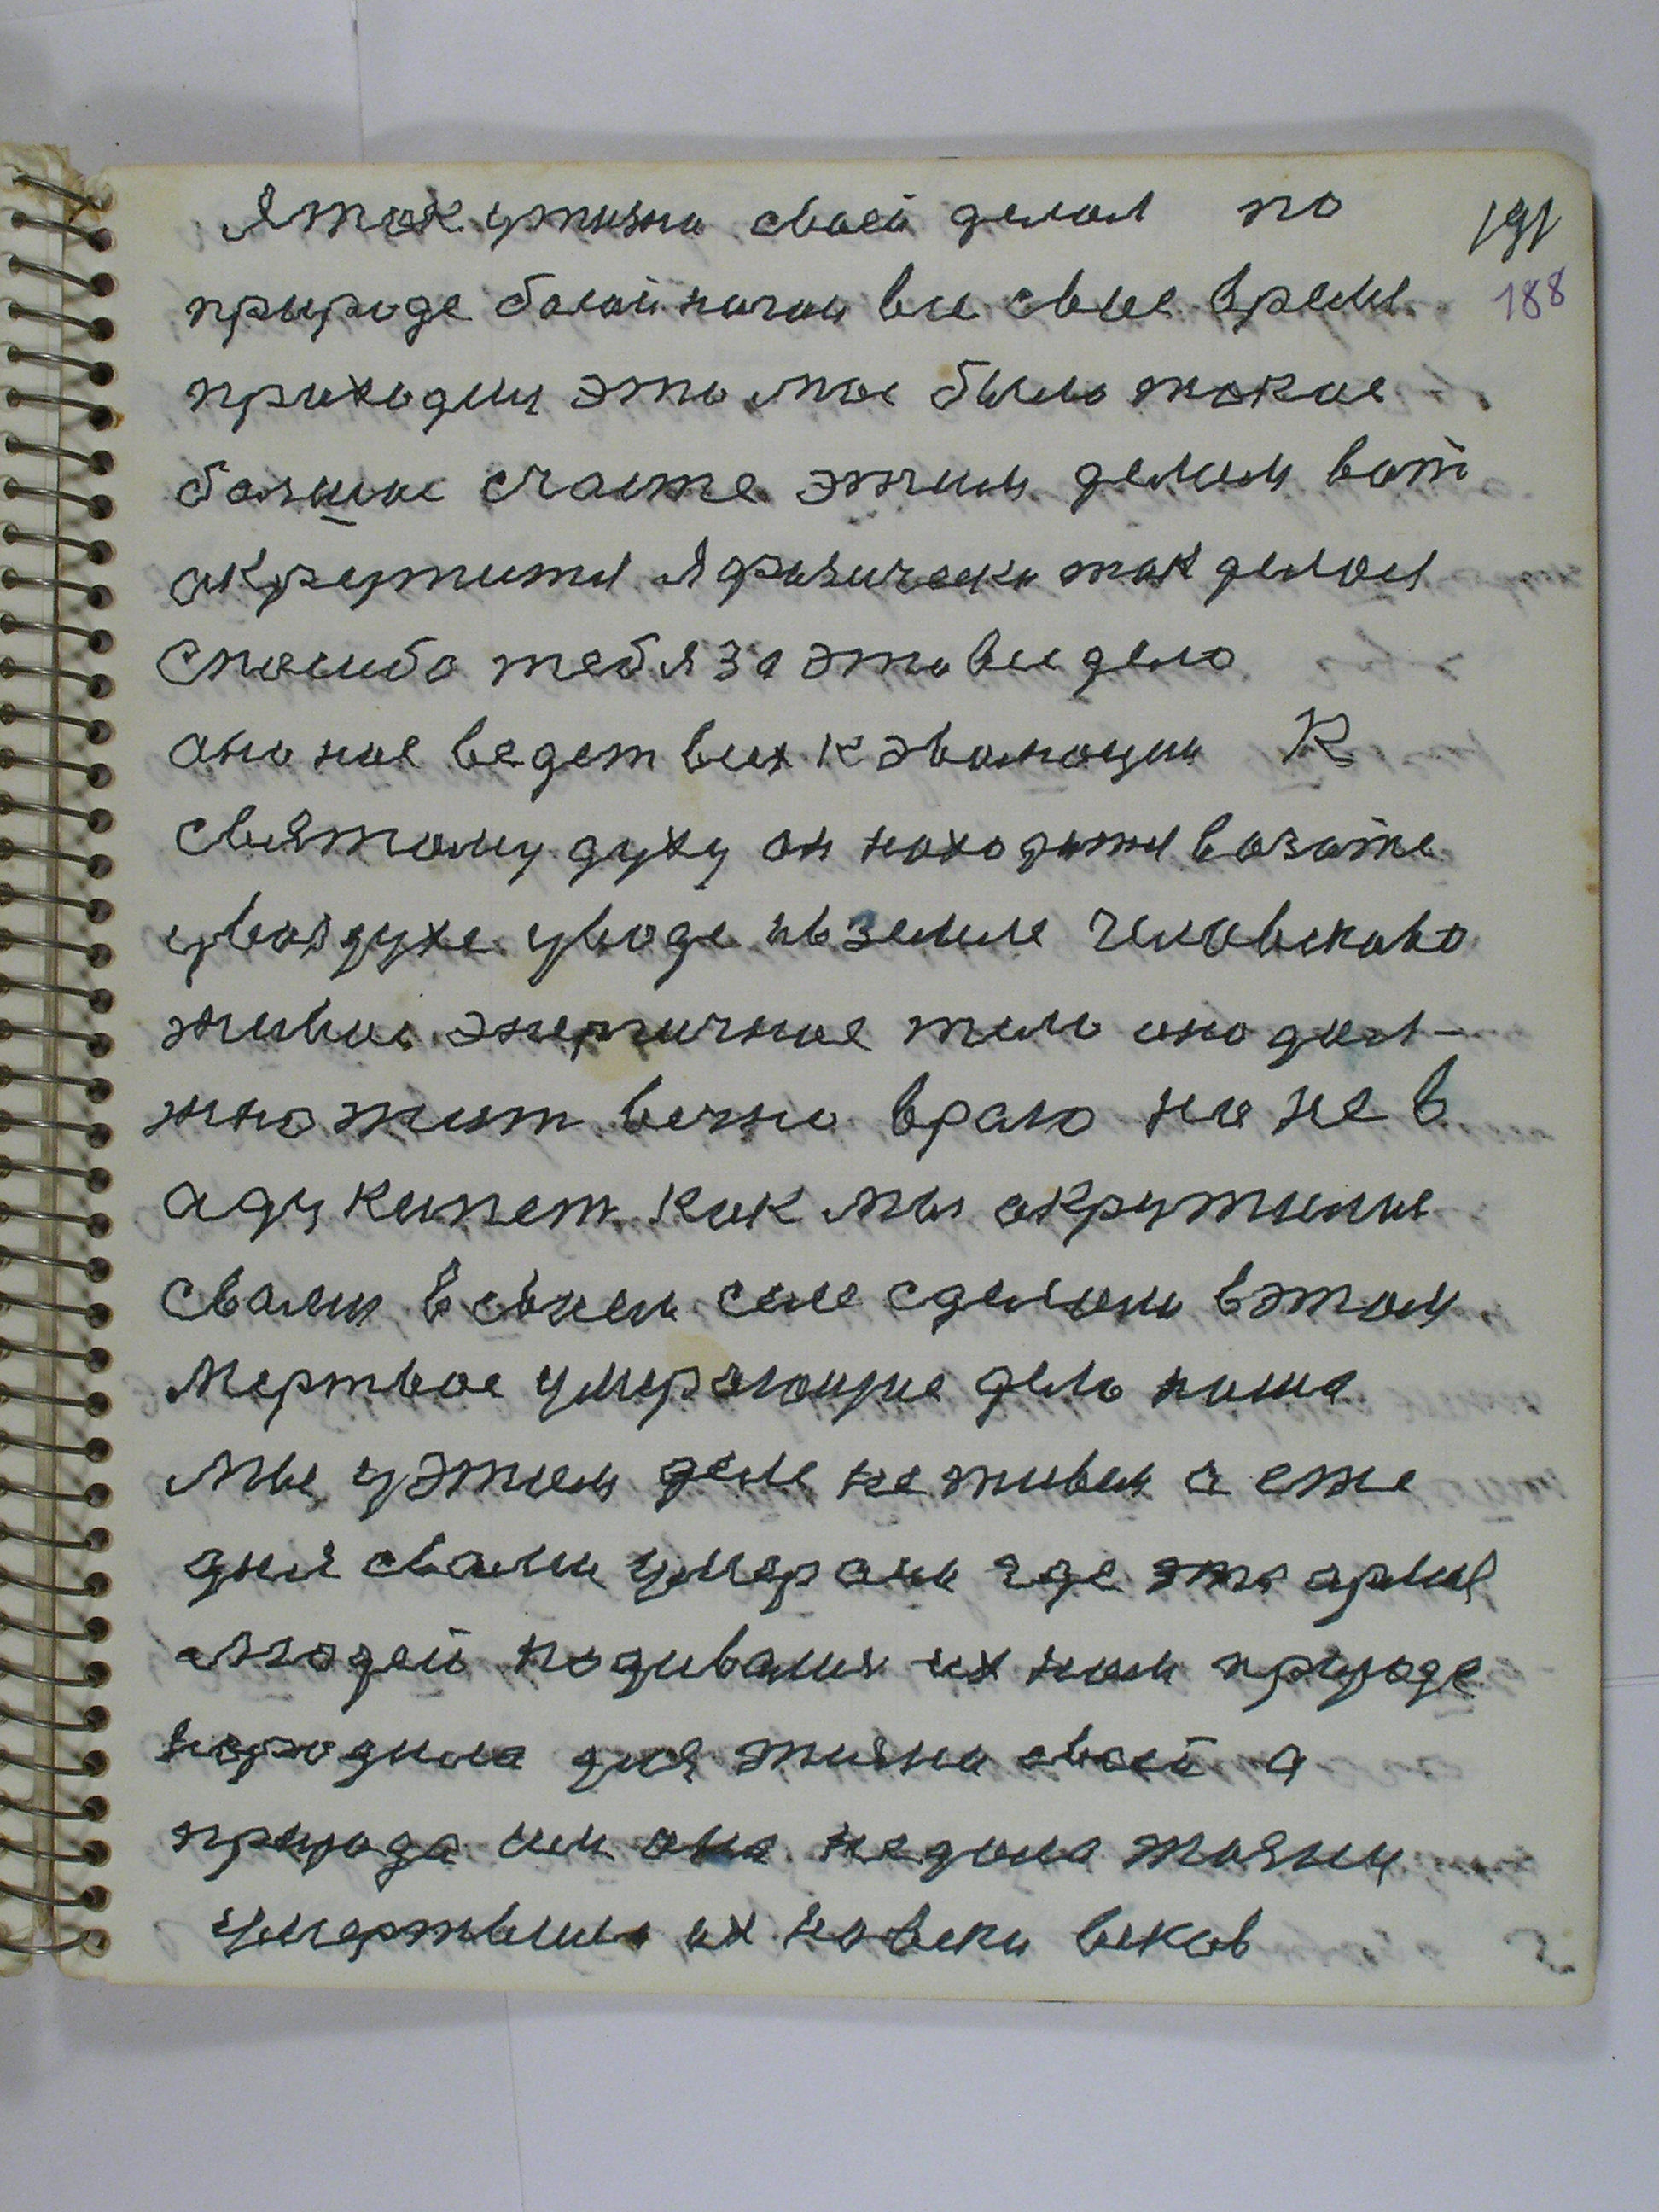 Я так ужизни своей делал по
191
природе босой ногой все свое время
188
приходил это мое было такое
болшое счасте этим делом вот
акружится я физически так делал
спасибо тебя за это все дело
оно нас ведет всех к эволюции К
святому духу он находится возате
увоздухе уводе ивземле человеково
живое энергичное тело оно дол-
жно жит вечно враю но не в
аду кипет как мы окружилис
свами всвоем селе сделали вэтом
мертвое умерающие дело наше
мы уэтом деле не живем а еже
дня свами умерали где эта армия
людей подивалис их нам природа
породила для жизни своей а
природа им она недала жизни
умертвила их навеки веков